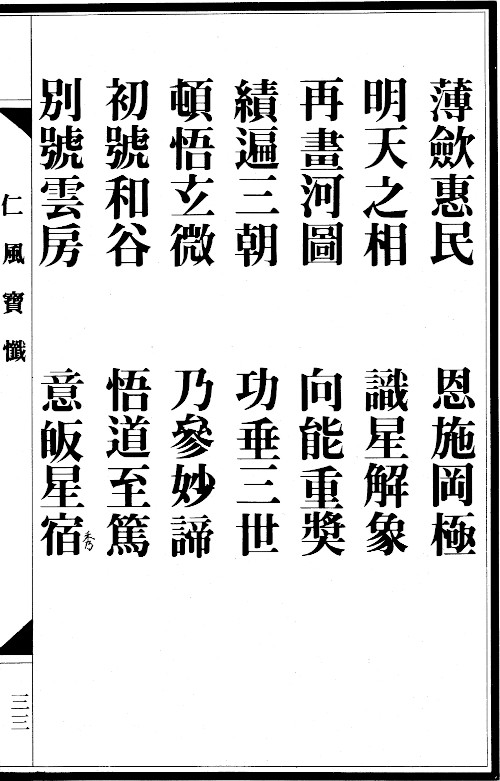 薄歛惠民　恩施岡極
明天之相　識星解象
再畫河圖　向能重獎
績遍三朝　功垂三世
頓悟玄微　乃參妙諦
初號和谷　悟道至篤
別號雲房　意皈星宿秀
仁風寶懺
三三